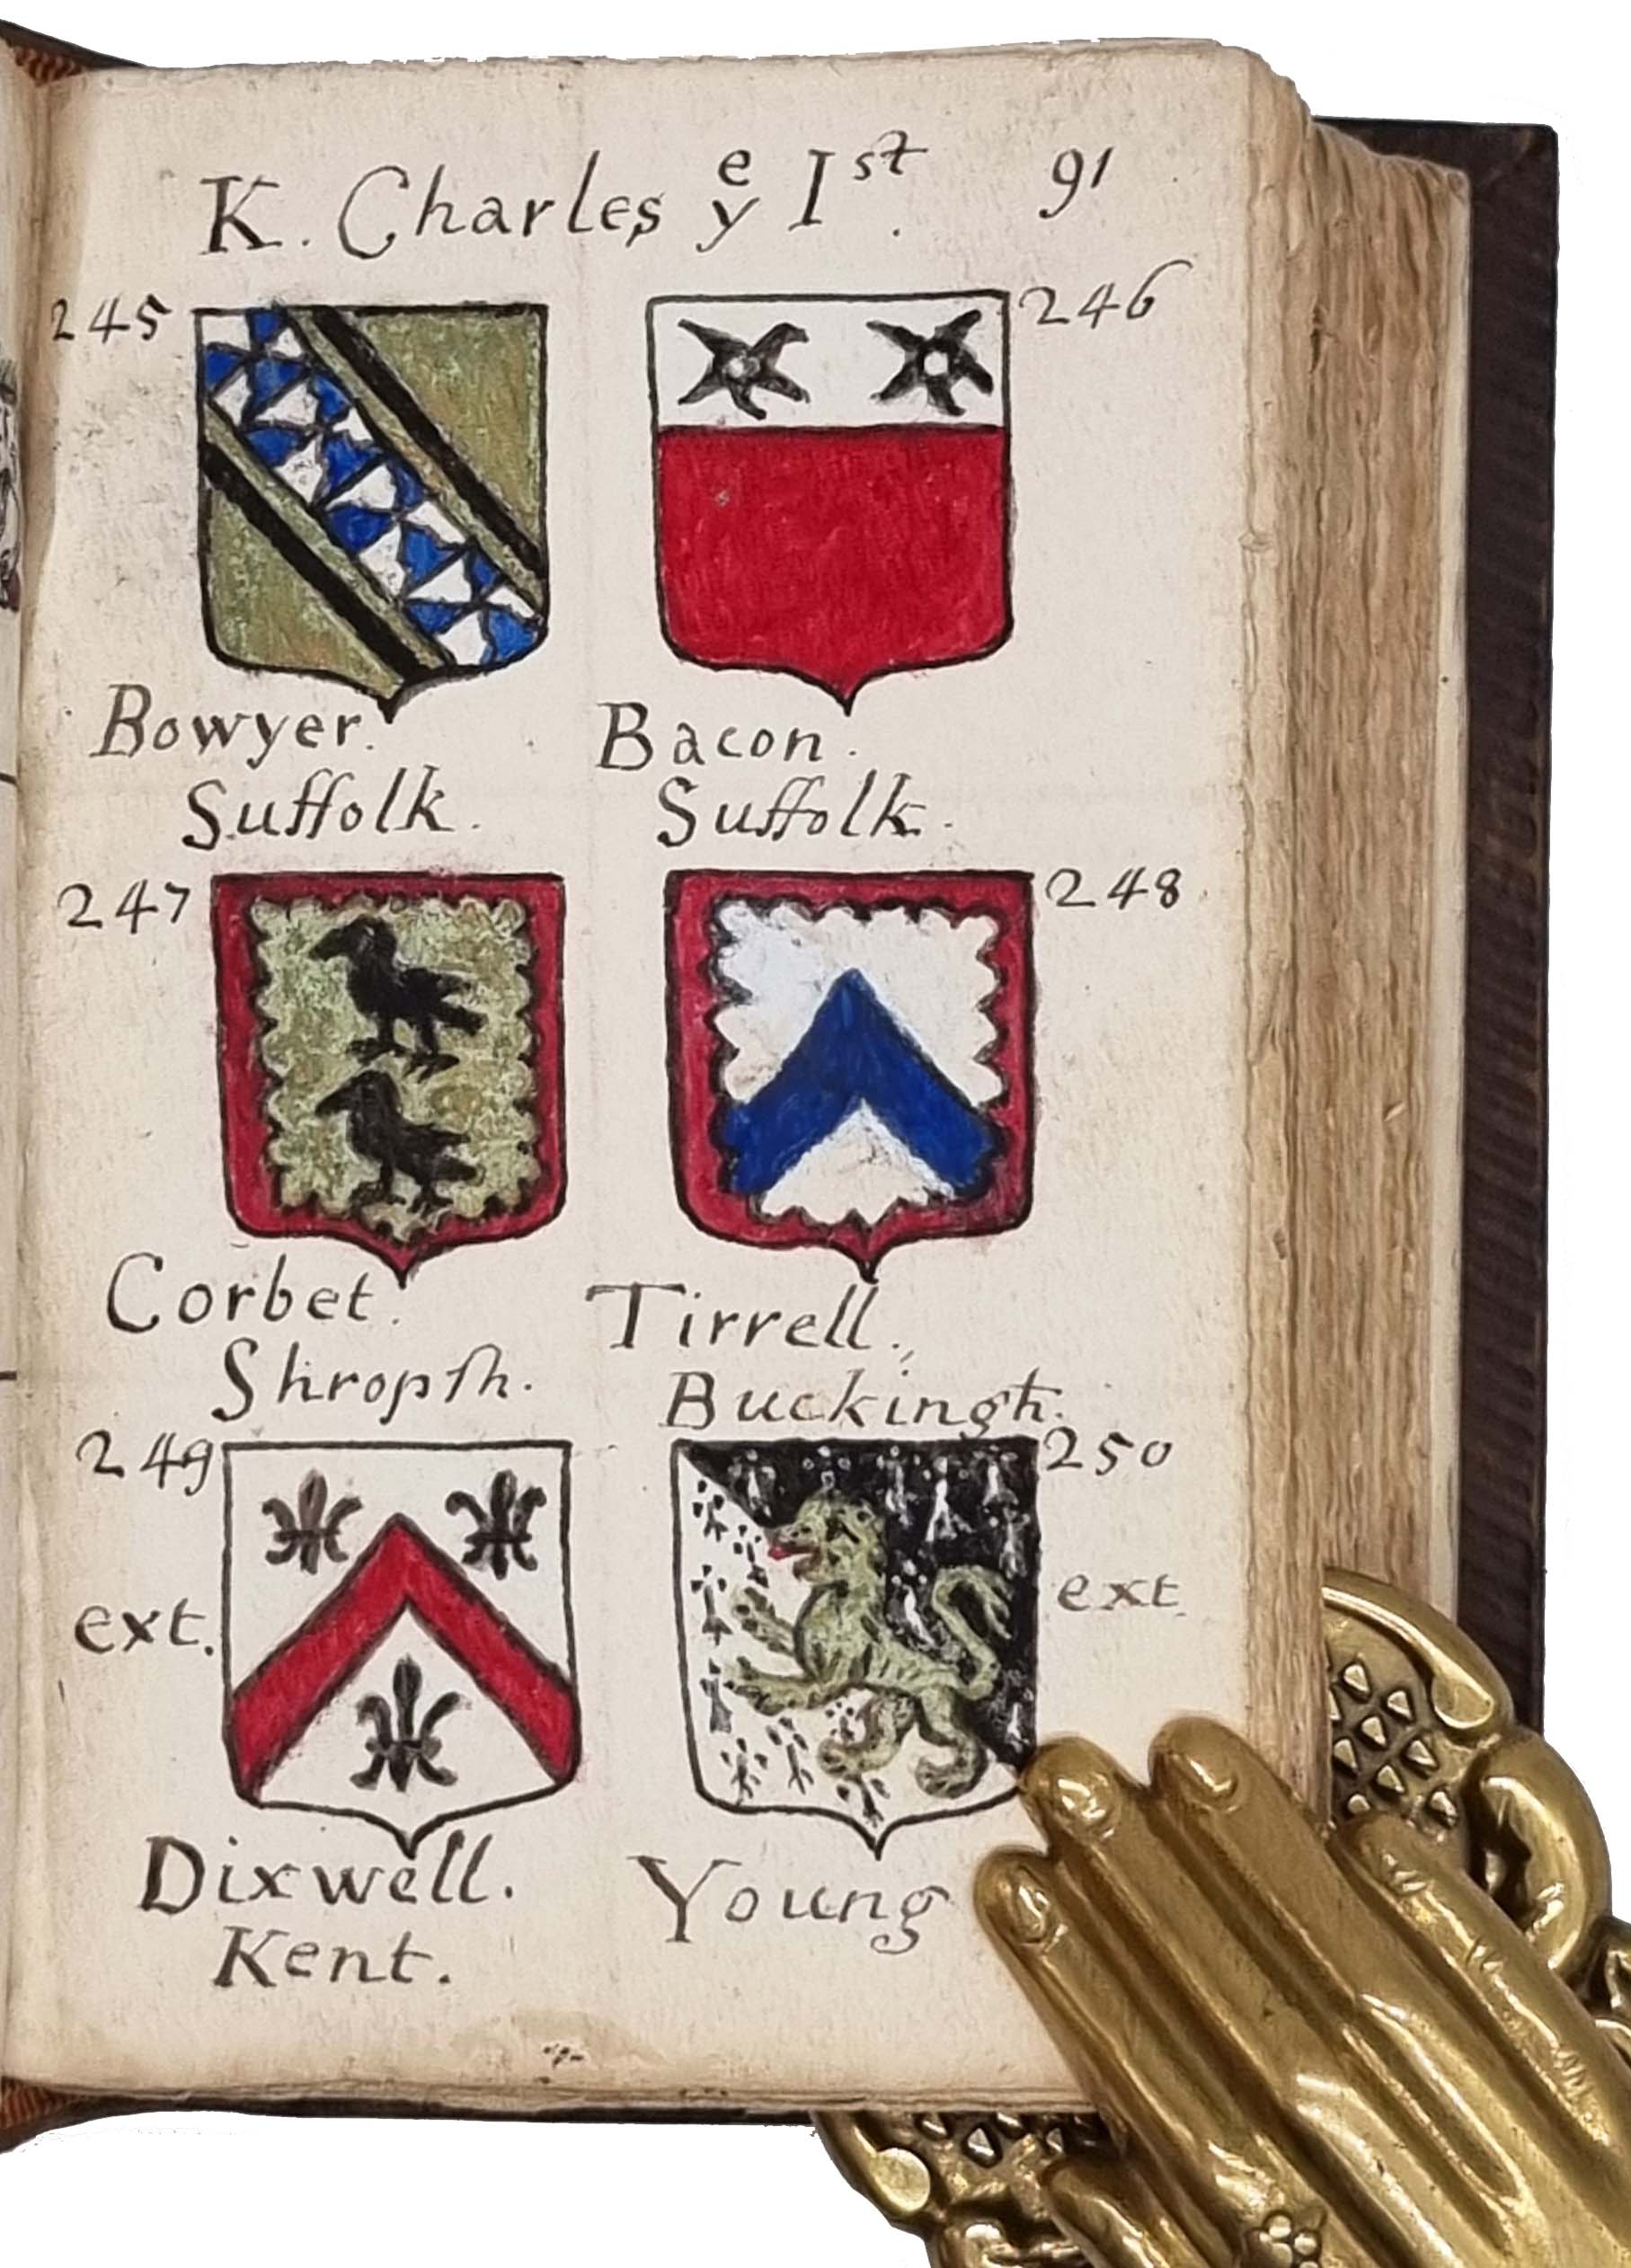 K. Charles yᵉ Iˢᵗ. 91
245 246
Bowyer. Bacon.
Suffolk. Suffolk.
247 248
Corbet. Tirrell.
Shropſh. Buckingh.
249 250
ext. ext.
Dixwell. Young
Kent.